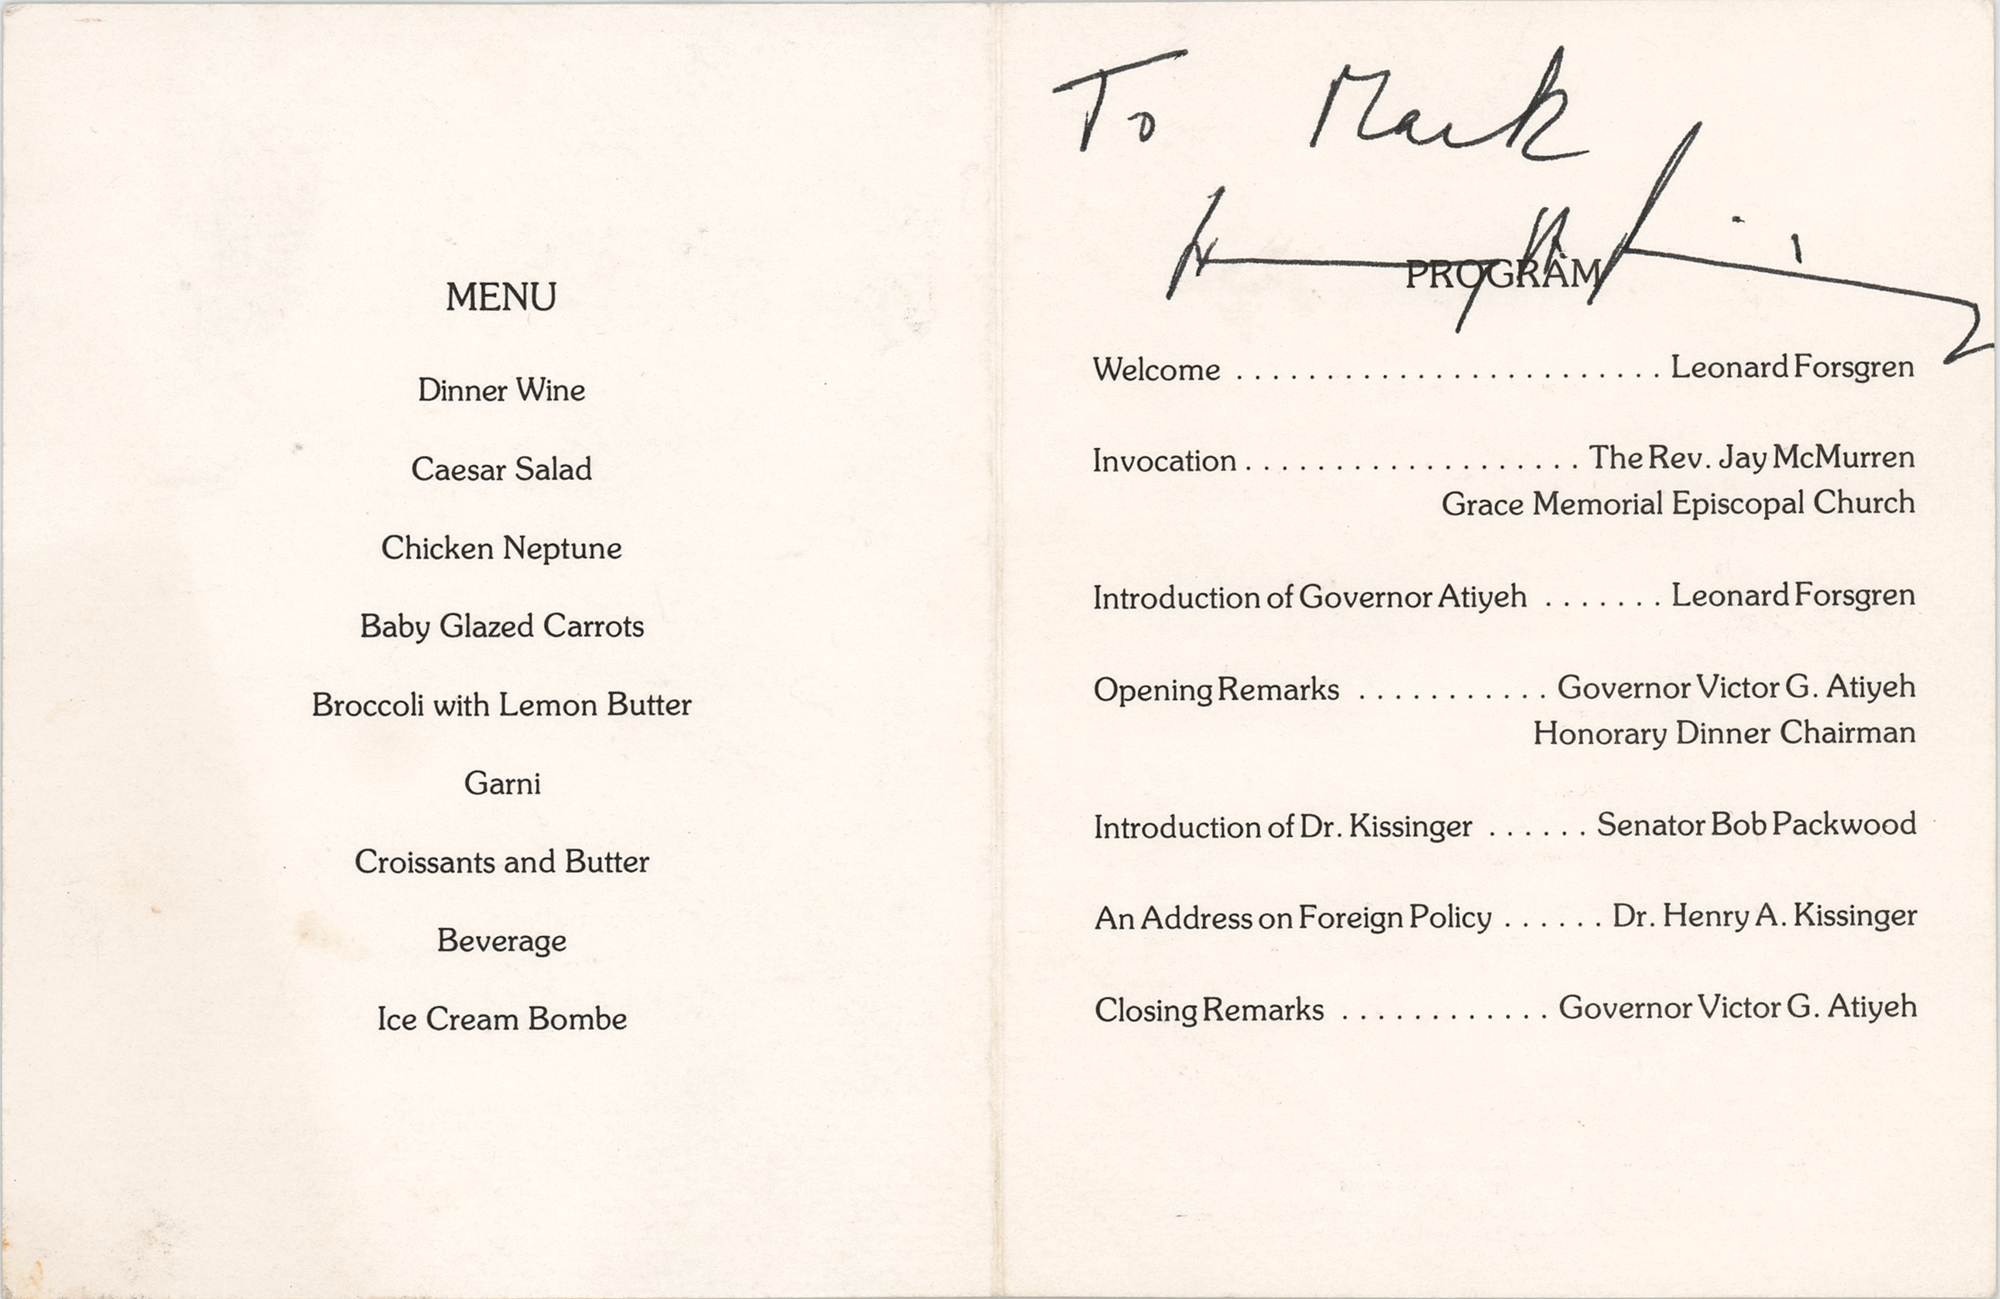 MENU
Dinner Wine
Caesar Salad
Chicken Neptune
Baby Glazed Carrots
Broccoli with Lemon Butter
Garni
Croissants and Butter
Beverage
Ice Cream Bombe
To Mark
PROGRAM
Welcome ........................ Leonard Forsgren
Invocation ................... The Rev. Jay McMurren
Grace Memorial Episcopal Church
Introduction of Governor Atiyeh ....... Leonard Forsgren
Opening Remarks ........... Governor Victor G. Atiyeh
Honorary Dinner Chairman
Introduction of Dr. Kissinger ...... Senator Bob Packwood
An Address on Foreign Policy ...... Dr. Henry A. Kissinger
Closing Remarks ............ Governor Victor G. Atiyeh